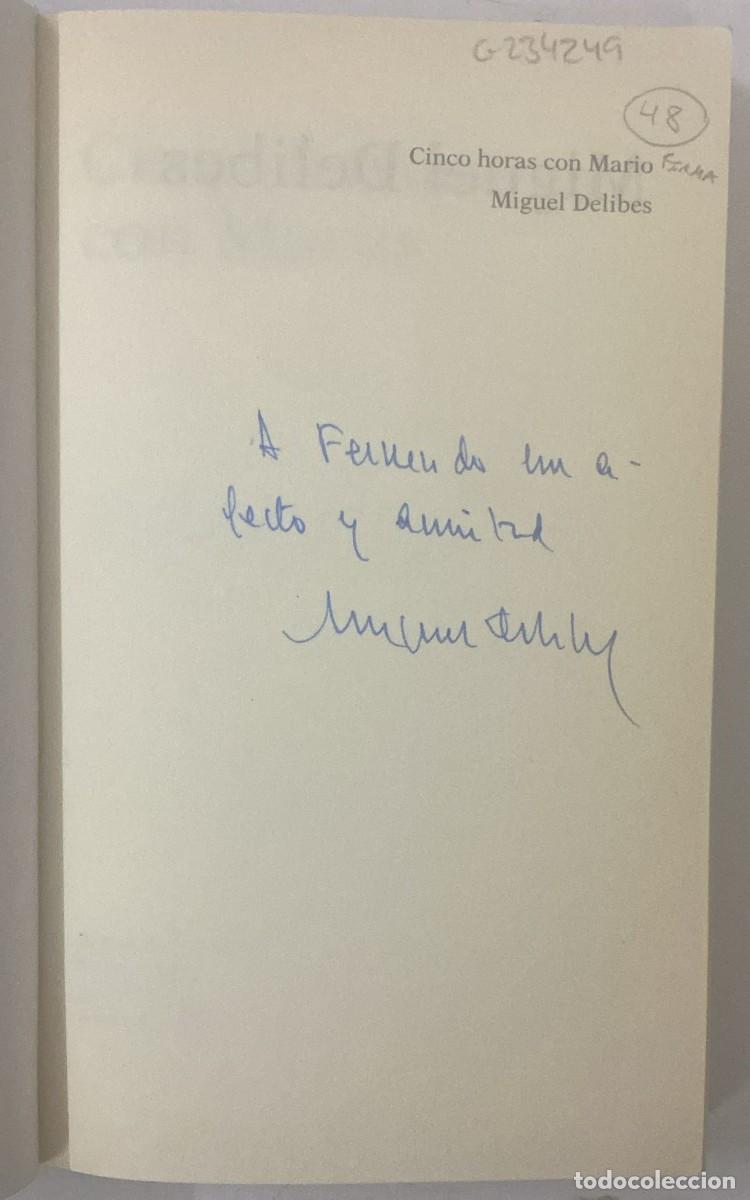 G-234249
48
Cinco horas con Mario FIRMA
Miguel Delibes
A Fernando con a-
fecto y amistad
Miguel Delibes
todocoleccion